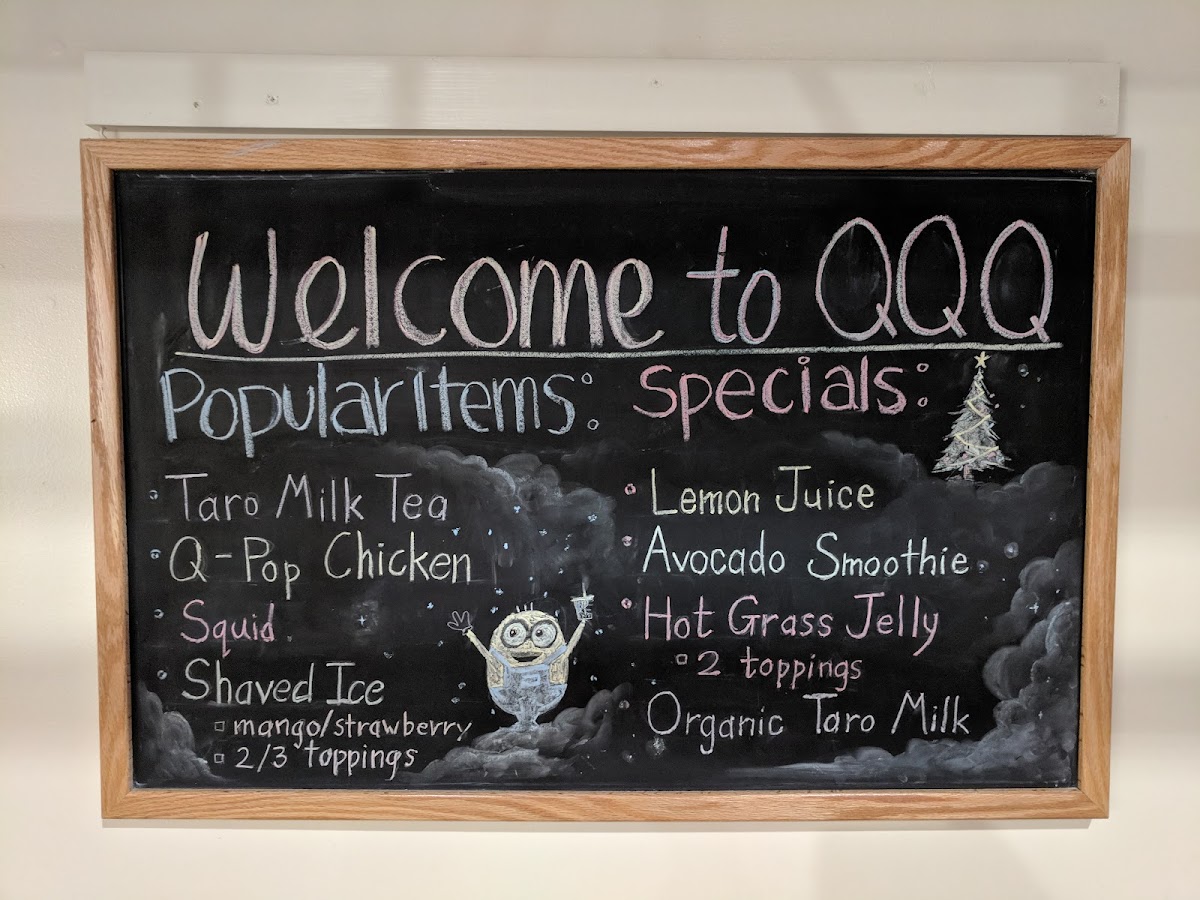 Welcome to QQQ
Popular Items:
Taro Milk Tea
Q-Pop Chicken
Squid
Shaved Ice
mango/strawberry
2/3 toppings
Specials:
Lemon Juice
Avocado Smoothie
Hot Grass Jelly
2 toppings
Organic Taro Milk